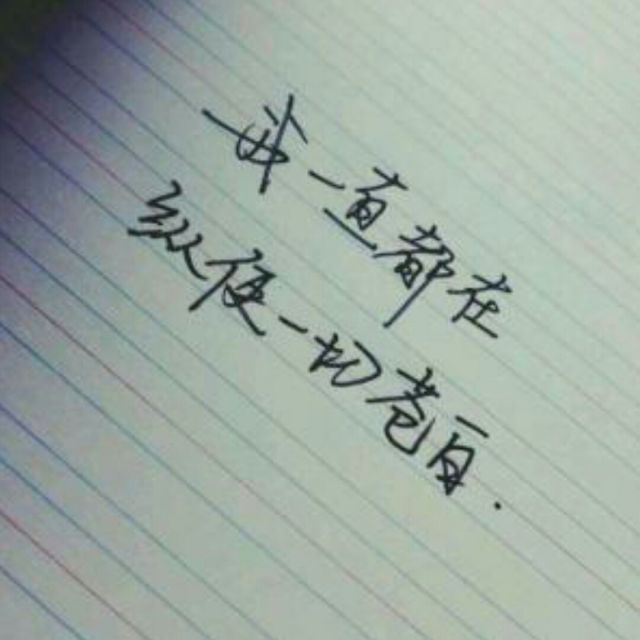 我一直都在
纵便一切苍白.